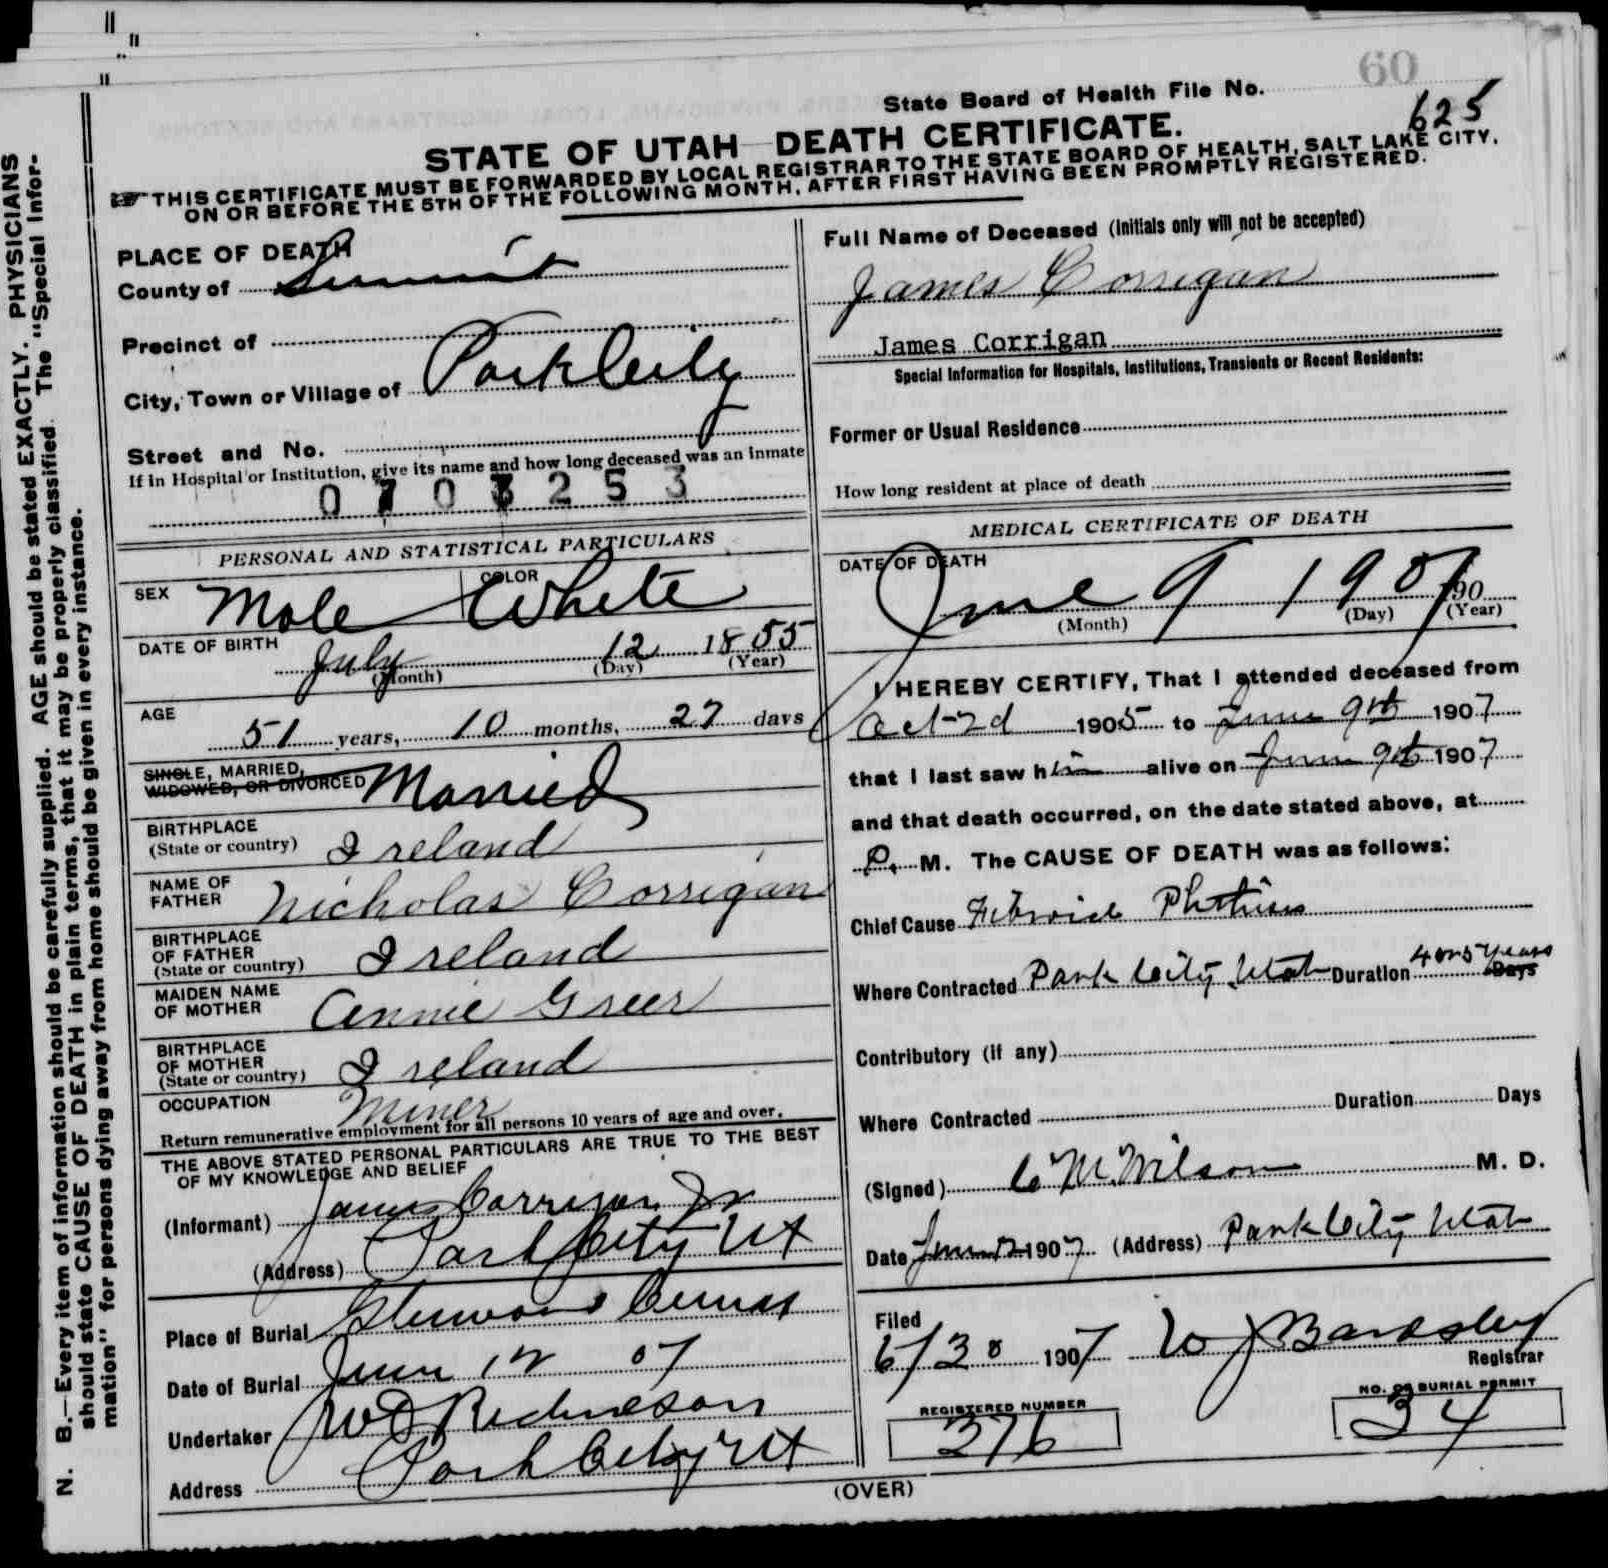 60
State Board of Health File No. 625
STATE OF UTAH DEATH CERTIFICATE.
THIS CERTIFICATE MUST BE FORWARDED BY LOCAL REGISTRAR TO THE STATE BOARD OF HEALTH, SALT LAKE CITY,
ON OR BEFORE THE 5TH OF THE FOLLOWING MONTH, AFTER FIRST HAVING BEEN PROMPTLY REGISTERED.
N. B.—Every item of information should be carefully supplied. AGE should be stated EXACTLY. PHYSICIANS
should state CAUSE OF DEATH in plain terms, that it may be properly classified. The "Special Infor-
mation" for persons dying away from home should be given in every instance.
PLACE OF DEATH
County of Summit
Precinct of
City, Town or Village of Park City
Street and No.
If in Hospital or Institution, give its name and how long deceased was an inmate
0703253
PERSONAL AND STATISTICAL PARTICULARS
SEX Male COLOR White
DATE OF BIRTH July 12 1855
(Month) (Day) (Year)
AGE 51 years, 10 months, 27 days
SINGLE, MARRIED,
WIDOWED, OR DIVORCED Married
BIRTHPLACE
(State or country) Ireland
NAME OF
FATHER Nicholas Corrigan
BIRTHPLACE
OF FATHER
(State or country) Ireland
MAIDEN NAME
OF MOTHER Annie Greer
BIRTHPLACE
OF MOTHER
(State or country) Ireland
OCCUPATION Miner
Return remunerative employment for all persons 10 years of age and over.
THE ABOVE STATED PERSONAL PARTICULARS ARE TRUE TO THE BEST
OF MY KNOWLEDGE AND BELIEF
(Informant) James Corrigan Jr
(Address) Park City Ut
Place of Burial Glenwood
Date of Burial June 12 07
Undertaker W D Richardson
Address Park City Ut
Full Name of Deceased (Initials only will not be accepted)
James Corrigan
James Corrigan
Special Information for Hospitals, Institutions, Transients or Recent Residents:
Former or Usual Residence
How long resident at place of death
MEDICAL CERTIFICATE OF DEATH
DATE OF DEATH
June 9 1907 190
(Month) (Day) (Year)
I HEREBY CERTIFY, That I attended deceased from
Oct 2d 1905 to June 9th 1907
that I last saw him alive on June 9th 1907
and that death occurred, on the date stated above, at
P. M. The CAUSE OF DEATH was as follows:
Chief Cause Fibroid Phthisis
Where Contracted Park City, Utah Duration 4 or 5 Years Days
Contributory (if any)
Where Contracted Duration Days
(Signed) C M Wilson M. D.
Date June 12 1907 (Address) Park City Utah
Filed
6/30 1907 W J Bardsley
Registrar
REGISTERED NUMBER
376
NO. OF BURIAL PERMIT
34
(OVER)